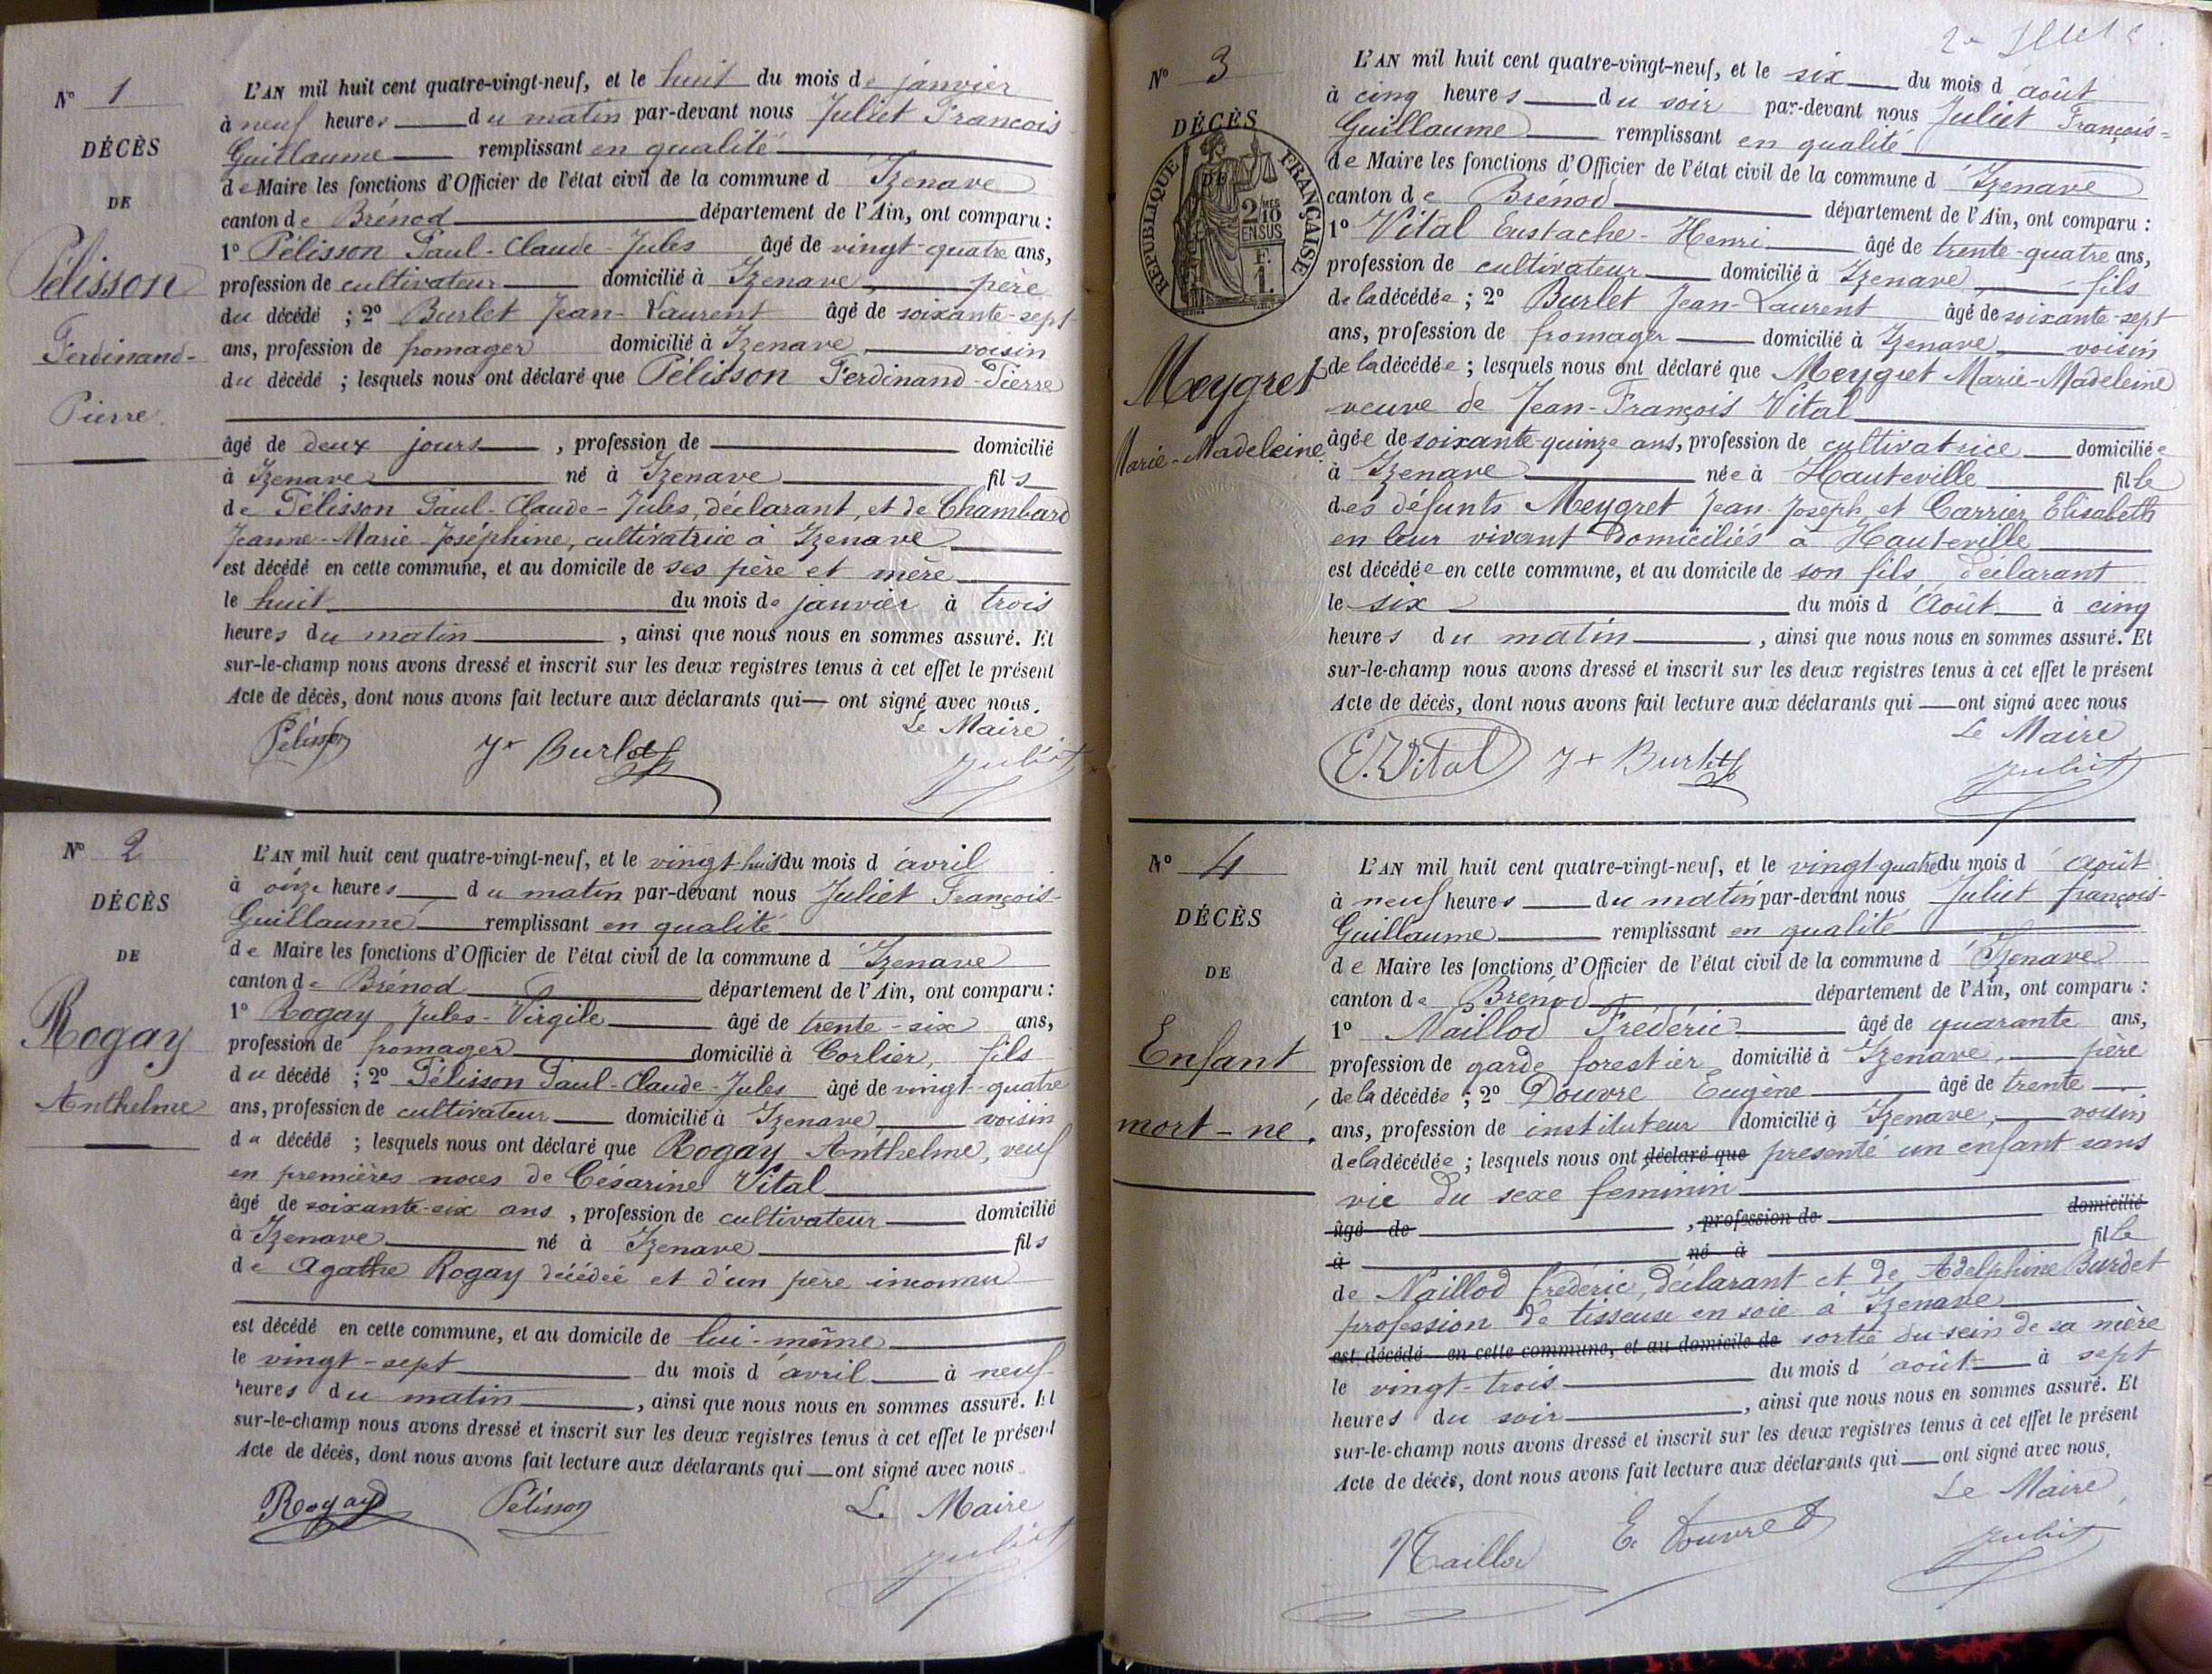 N° 1
DÉCÈS
DE
Pélisson
Ferdinand-
Pierre.
L'AN mil huit cent quatre-vingt-neuf, et le huit du mois de janvier
à neuf heures du matin par-devant nous Juliet François
Guillaume remplissant en qualité
de Maire les fonctions d'Officier de l'état civil de la commune d'Izenave
canton de Brénod département de l'Ain, ont comparu :
1° Pélisson Paul-Claude-Jules âgé de vingt-quatre ans,
profession de cultivateur domicilié à Izenave, père
du décédé ; 2° Burlet Jean-Laurent âgé de soixante-sept
ans, profession de fromager domicilié à Izenave, voisin
du décédé ; lesquels nous ont déclaré que Pélisson Ferdinand-Pierre
âgé de deux jours, profession de domicilié
à Izenave né à Izenave fils
de Pélisson Paul-Claude-Jules, déclarant, et de Chambard
Jeanne-Marie-Joséphine, cultivatrice à Izenave
est décédé en cette commune, et au domicile de ses père et mère
le huit du mois de janvier à trois
heures du matin, ainsi que nous nous en sommes assuré. Et
sur-le-champ nous avons dressé et inscrit sur les deux registres tenus à cet effet le présent
Acte de décès, dont nous avons fait lecture aux déclarants qui — ont signé avec nous.
Le Maire
Pélisson Jx Burlet Juliet
N° 2
DÉCÈS
DE
Rogay
Anthelme
L'AN mil huit cent quatre-vingt-neuf, et le vingt-huit du mois d'avril
à onze heures du matin par-devant nous Juliet François-
Guillaume remplissant en qualité
de Maire les fonctions d'Officier de l'état civil de la commune d'Izenave
canton de Brénod département de l'Ain, ont comparu :
1° Rogay Jules-Virgile âgé de trente-six ans,
profession de fromager domicilié à Corlier, fils
du décédé ; 2° Pélisson Paul-Claude-Jules âgé de vingt-quatre
ans, profession de cultivateur domicilié à Izenave, voisin
du décédé ; lesquels nous ont déclaré que Rogay Anthelme, veuf
en premières noces de Césarine Vital
âgé de soixante-six ans, profession de cultivateur domicilié
à Izenave né à Izenave fils
de Agathe Rogay décédée et d'un père inconnu
est décédé en cette commune, et au domicile de lui-même
le vingt-sept du mois d'avril à neuf
heures du matin, ainsi que nous nous en sommes assuré. Et
sur-le-champ nous avons dressé et inscrit sur les deux registres tenus à cet effet le présent
Acte de décès, dont nous avons fait lecture aux déclarants qui — ont signé avec nous
Rogay Pélisson Le Maire
Juliet
N° 3
DÉCÈS
DE
RÉPUBLIQUE FRANÇAISE
2/10 MES
EN SUS
F.
1.
Meygret
Marie-Madeleine
L'AN mil huit cent quatre-vingt-neuf, et le six du mois d'août
à cinq heures du soir par-devant nous Juliet François-
Guillaume remplissant en qualité
de Maire les fonctions d'Officier de l'état civil de la commune d'Izenave
canton de Brénod département de l'Ain, ont comparu :
1° Vital Eustache-Henri âgé de trente-quatre ans,
profession de cultivateur domicilié à Izenave, fils
de la décédée ; 2° Burlet Jean-Laurent âgé de soixante-sept
ans, profession de fromager domicilié à Izenave, voisin
de la décédée ; lesquels nous ont déclaré que Meygret Marie-Madeleine
veuve de Jean-François Vital
âgée de soixante-quinze ans, profession de cultivatrice domiciliée
à Izenave née à Hauteville fille
des défunts Meygret Jean-Joseph et Carrier Elisabeth
en leur vivant domiciliés à Hauteville
est décédée en cette commune, et au domicile de son fils, déclarant
le six du mois d'Août à cinq
heures du matin, ainsi que nous nous en sommes assuré. Et
sur-le-champ nous avons dressé et inscrit sur les deux registres tenus à cet effet le présent
Acte de décès, dont nous avons fait lecture aux déclarants qui — ont signé avec nous
Le Maire
E. Vital Jx Burlet Juliet
N° 4
DÉCÈS
DE
Enfant
mort-né.
L'AN mil huit cent quatre-vingt-neuf, et le vingt-quatre du mois d'août
à neuf heures du matin par-devant nous Juliet françois-
Guillaume remplissant en qualité
de Maire les fonctions d'Officier de l'état civil de la commune d'Izenave
canton de Brénod département de l'Ain, ont comparu :
1° Naillod Frédéric âgé de quarante ans,
profession de garde forestier domicilié à Izenave, père
de la décédée ; 2° Douvre Eugène âgé de trente
ans, profession de instituteur domicilié à Izenave, voisin
de la décédée ; lesquels nous ont déclaré que presenté un enfant sans
vie du sexe feminin
âgé de , profession de domicilié
à né à fille
de Naillod frédéric, déclarant et de Adelphine Burdet
profession de tisseuse en soie à Izenave
est décédé en cette commune, et au domicile de sortie du sein de sa mère
le vingt-trois du mois d'août à sept
heures du soir, ainsi que nous nous en sommes assuré. Et
sur-le-champ nous avons dressé et inscrit sur les deux registres tenus à cet effet le présent
Acte de décès, dont nous avons fait lecture aux déclarants qui — ont signé avec nous.
Le Maire,
Naillod E. Douvre Juliet